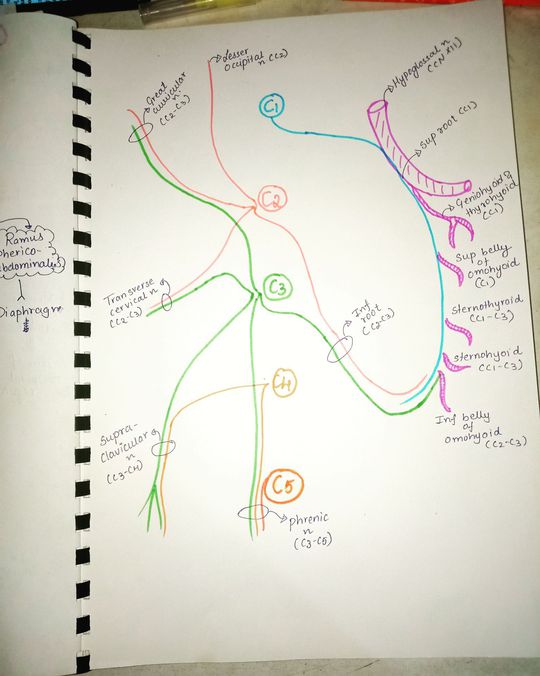 Lesser
occipital
n (C2)
Great
auricular
n
(C2-C3)
C1
Hypoglossal n
(CN XII)
Sup root (C1)
Geniohyoid &
thyrohyoid
(C1)
C2
Sup belly
of
omohyoid
(C1)
Ramus
Pherico-
abdominales
Diaphragm
Transverse
cervical n
(C2-C3)
C3
Inf
root
(C2-C3)
Sternothyroid
(C1-C3)
sternohyoid
(C1-C3)
C4
Inf belly
of
omohyoid
(C2-C3)
Supra-
clavicular
n
(C3-C4)
C5
phrenic
n
(C3-C5)